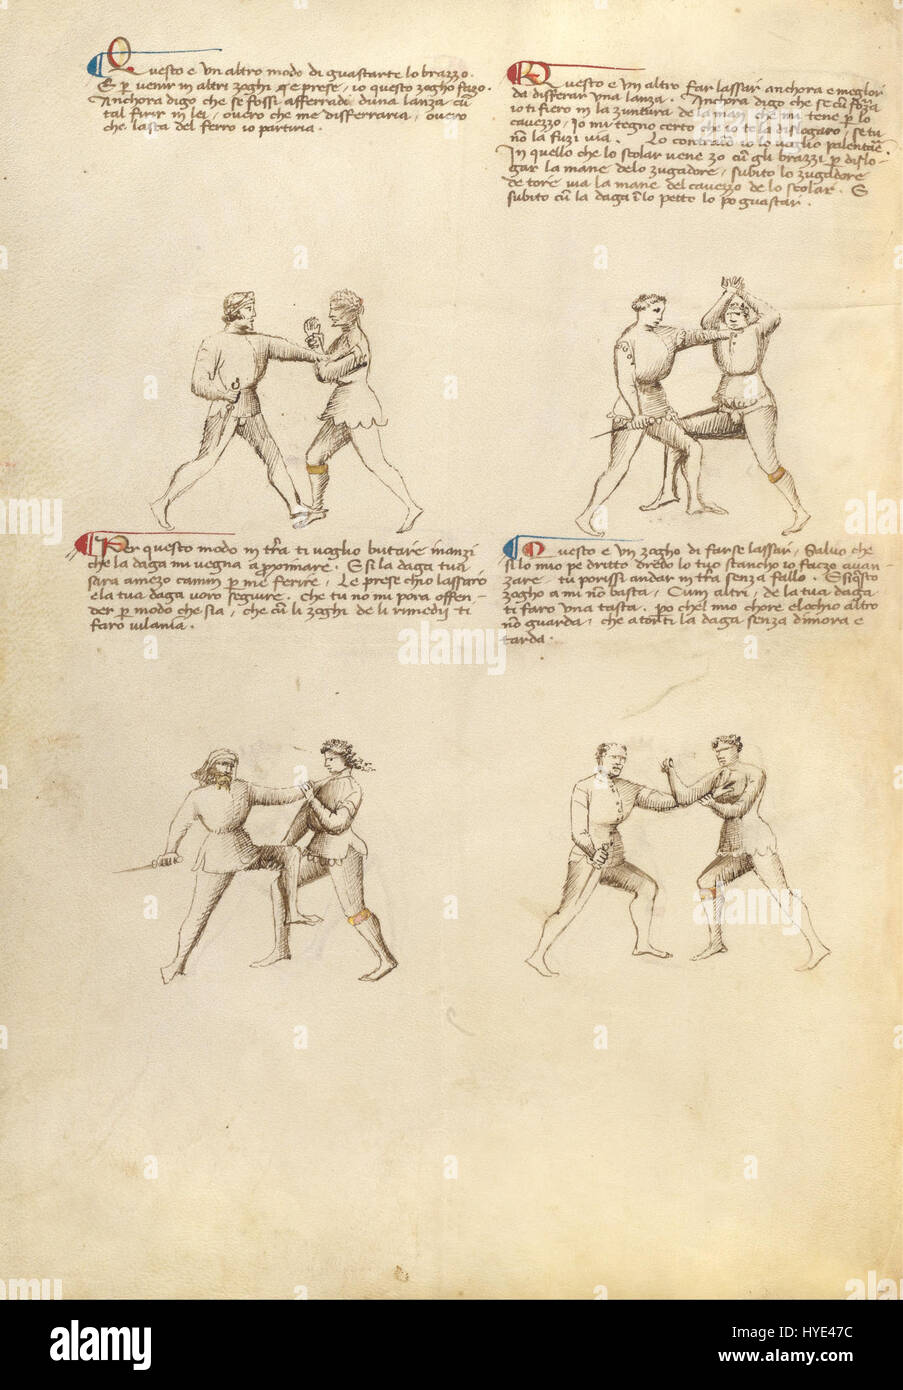 Questo e un altro modo di guastarte lo brazzo.
E per venir in altri zoghi e prese, io questo zogho fazo.
Anchora digo che se fossi afferrado d'una lanza cum
tal firir in lei, overo che me disferraria, overo
che lasta del ferro io partiria.
Questo e un altro far lassar anchora e meglior
da disferar una lanza. Anchora digo che se cum forza
io ti fiero in la zuntura de la man che mi tene per lo
cavezzo, Io mi tegno certo che io te la dislogaro, se tu
non la fuzi via. Lo contrario io lo voglio palentare.
In quello che lo scolar vene zo cum gli brazzi per dislo-
gar la mane delo zugadore, subito lo zugadore
de tore via la mane del cavezzo de lo scolar. E
subito cum la daga in lo petto lo po guastar.
Per questo modo in terra ti voglio butare inanzi
che la daga mi vegna aproximare. E si la daga tua
sara amezo camin per me ferire, Le prese ch'io lassaro
e la tua daga voro seguire. Che tu no mi pora offen-
der per modo che sia, che cum li zoghi de li rimedii ti
faro vilania.
Questo e un zogho di farse lassar, Salvo che
si lo mio pe dritto dredo lo tuo stancho io fazo avan-
zare tu porissi andar in terra senza fallo. E si questo
zogho a mi non basta, Cum altri, de la tua daga
ti faro una tasta. po chel mio chore e lochio altro
non guarda, che a torti la daga senza dimora e
tarda.
alamy
alamy stock photo
alamy
Image ID: HYE47C
www.alamy.com